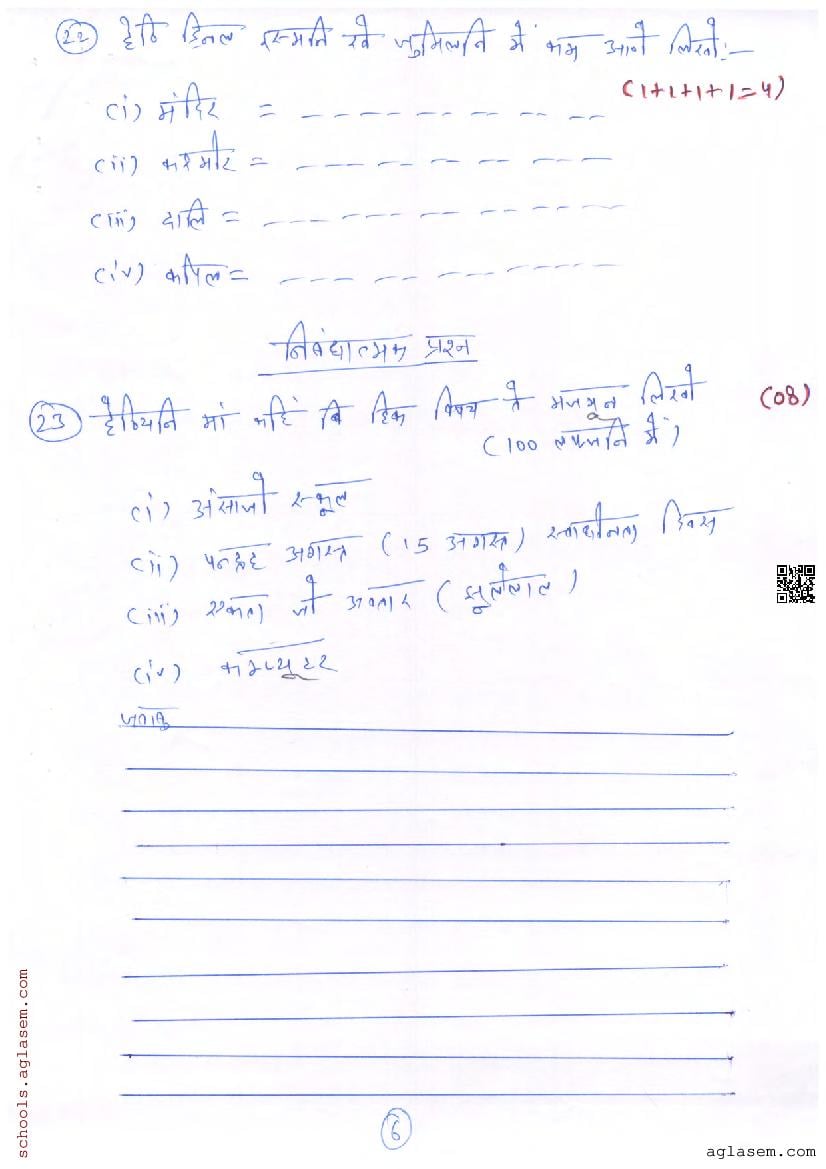 22 हेठि डिनल इस्मनि खे जुमिलनि में कम आणे लिखो:-
(1+1+1+1=4)
(i) मंदिर = - - - - - - - - - -
(ii) कश्मीर = - - - - - - - - - -
(iii) दालि = - - - - - - - - - -
(iv) कपिल = - - - - - - - - - -
निबंधात्मक प्रश्न
23 हेठियनि मां कहिं बि हिक विषय ते मजमून लिखो (08)
(100 लफ्जनि में)
(i) असांजो स्कूल
(ii) पन्द्रह अगस्त (15 अगस्त) स्वाधीनता दिवस
(iii) एकता जो अवतार (झूलेलाल)
(iv) कम्प्यूटर
जवाबु
6
schools.aglasem.com
aglasem.com